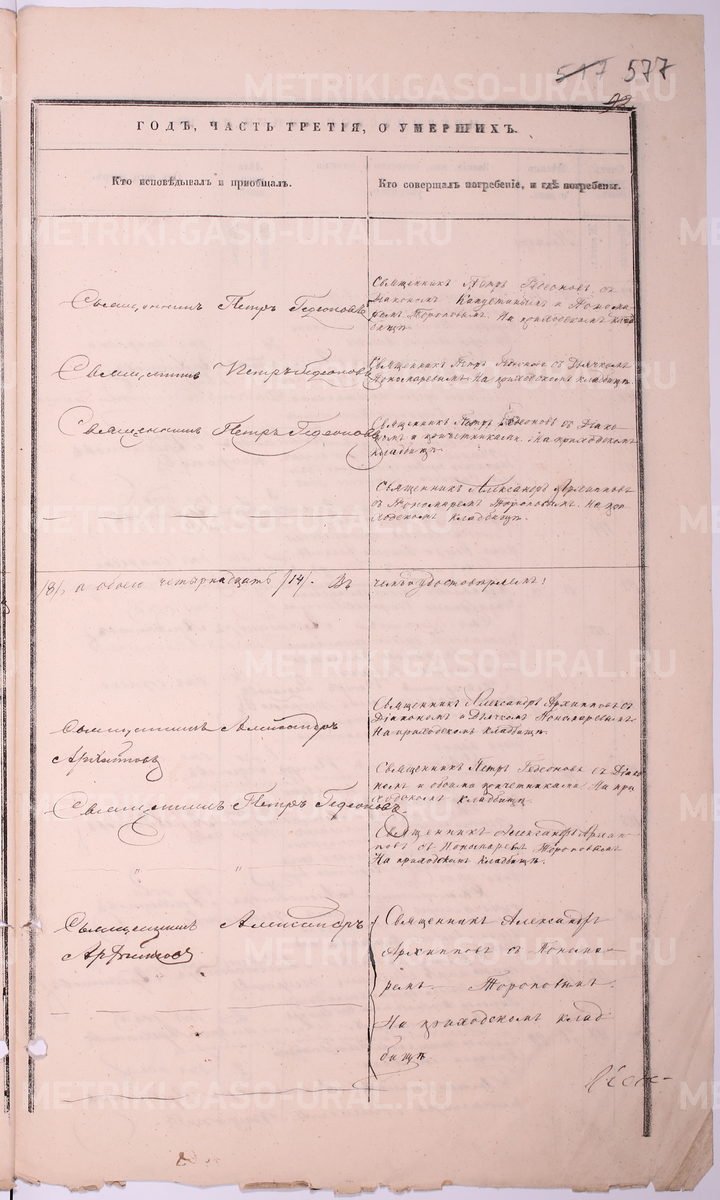 517 577
92
ГОДѢ, ЧАСТЬ ТРЕТІЯ, О УМЕРШИХЪ.
Кто исповѣдывалъ и приобщалъ.
Кто совершалъ погребеніе, и гдѣ погребены.
Священникъ Петръ Гедеоновъ
Священникъ Петръ Гедеоновъ съ
Діакономъ и Понома-
ремъ Тороповымъ. На приходскомъ клад-
бищѣ
Священникъ Петръ Гедеоновъ
Священникъ Петръ Гедеоновъ съ Дьячкомъ
Пономаревымъ На приходскомъ кладбищѣ.
Священникъ Петръ Гедеоновъ
Священникъ Петръ Гедеоновъ съ Діако-
номъ и причетниками. На приходскомъ
кладбищѣ
Священникъ Александръ Архипповъ
съ Пономаремъ Тороповымъ. На при-
ходскомъ кладбищѣ.
/8/, а обоего четырнадцать /14/. Въ чемъ и удостовѣряемъ:
Священникъ Александръ
Архипповъ
Священникъ Александръ Архипповъ съ
Діакономъ и Дьячкомъ Пономаревымъ
На приходскомъ кладбищѣ.
Священникъ Петръ Гедеоновъ
Священникъ Петръ Гедеоновъ съ Діако-
номъ и обоима причетниками На при-
ходскомъ кладбищѣ
Священникъ Александръ Архип-
повъ съ Тороповымъ
На приходскомъ кладбищѣ.
Священникъ Александръ
Архипповъ
Священникъ Александръ
Архипповъ съ Понома-
ремъ Тороповымъ.
На приходскомъ клад-
бищѣ
METRIKI.GASO-URAL.RU